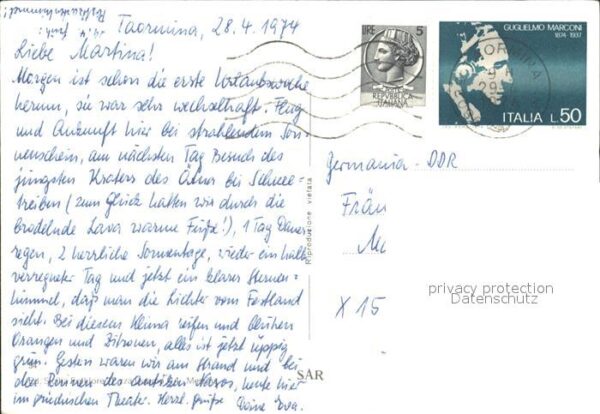 Taormina, 28.4.1974
Liebe Martina!
Morgen ist schon die erste Urlaubswoche
herum, sie war sehr wechselhaft: Flug
und Ankunft hier bei strahlendem Son-
nenschein, am nächsten Tag Besuch des
jüngsten Kraters des Ätna bei Schnee-
treiben (zum Glück hatten wir durch die
brodelnde Lava warme Füße!), 1 Tag Dauer
regen, 2 herrliche Sonnentage, wieder ein halb
verregneter Tag und jetzt ein klarer Sternen=
himmel, daß man die Lichter vom Festland
sieht. Bei diesem Klima reifen und blühen
Orangen und Zitronen, alles ist jetzt üppig
grün. Gestern waren wir am Strand und bei
den Ruinen des antiken Naxos, heute hier
im griechischen Theater. Herzl. Grüße Deine Eva.
LIRE 5
REPUBBLICA
ITALIANA
GUGLIELMO MARCONI
1874-1937
ITALIA L.50
Germania - DDR
Frän
X 15
Riproduzione vietata
SAR
privacy protection
Datenschutz